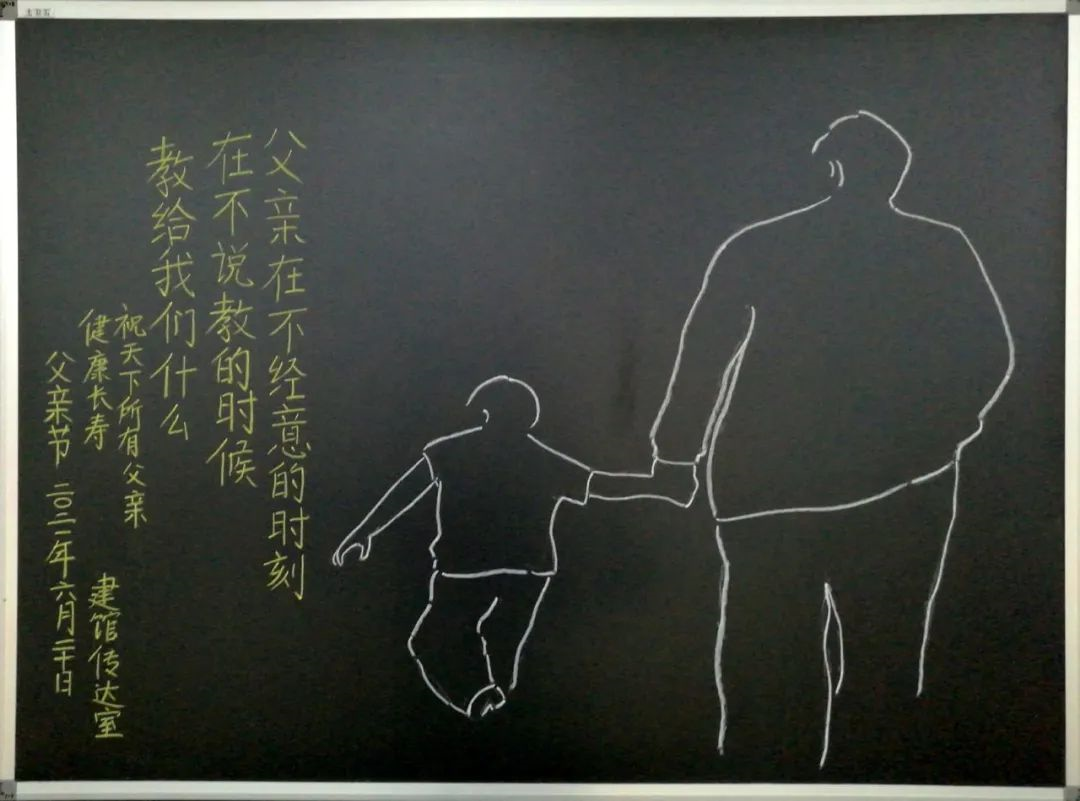 父亲在不经意的时刻
在不说教的时候
教给我们什么
祝天下所有父亲
健康长寿
父亲节 二〇二一年六月二十日
建馆传达室